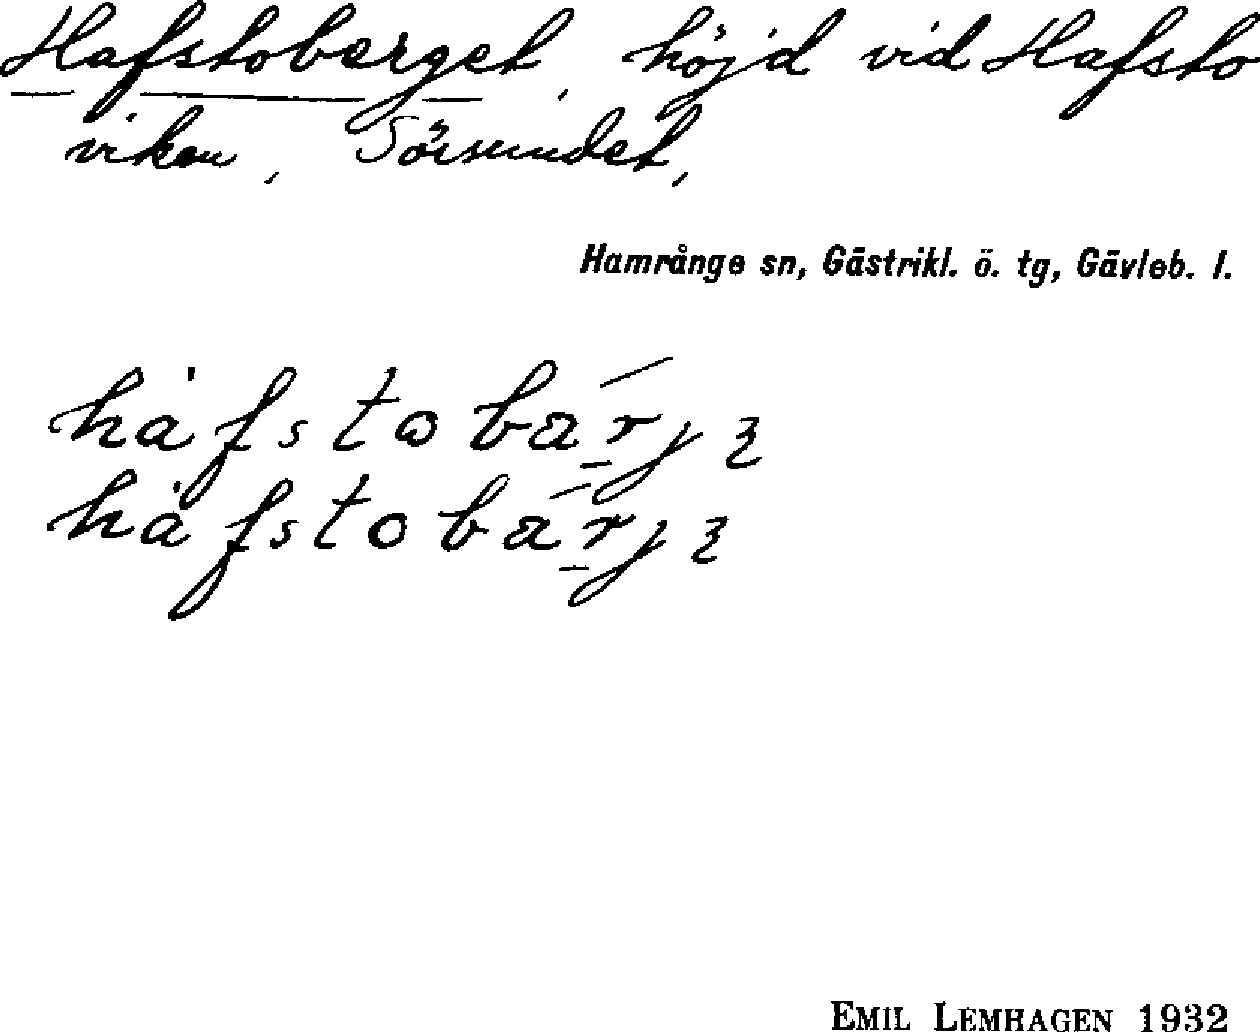 Hafstoberget, höjd vid Hafsto
viken, Sörsundet,
Hamrånge sn, Gästrikl. ö. tg, Gävleb. l.
hàfstobärjȩ
hàfstobärjȩ
EMIL LEMHAGEN 1932